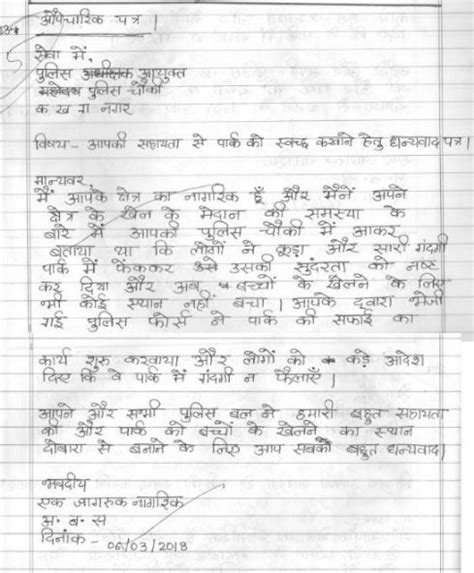 औपचारिक पत्र |
सेवा में,
पुलिस अधीक्षक आयुक्त
पुलिस चौकी
क ख ग नगर
विषय - आपकी सहायता से पार्क को स्वच्छ करवाने हेतु धन्यवाद पत्र |
मान्यवर,
मैं आपके क्षेत्र का नागरिक हूँ और मैनें अपने
क्षेत्र के खेल के मैदान की समस्या के
बारे में आपकी पुलिस चौकी में आकर
बताया था कि लोगों ने कूड़ा और सारी गंदगी
पार्क में फेंककर उसे उसकी सुंदरता को नष्ट
कर दिया और अब बच्चों के खेलने के लिए
भी कोई स्थान नहीं बचा | आपके द्वारा भेजी
गई पुलिस फोर्स ने पार्क की सफाई का
कार्य शुरु करवाया और लोगों को कड़े आदेश
दिए कि वे पार्क में गंदगी न फैलाएँ |
आपने और सभी पुलिस बल ने हमारी बहुत सहायता
की और पार्क को बच्चों के खेलने का स्थान
दोबारा से बनाने के लिए आप सबको बहुत धन्यवाद |
भवदीय
एक जागरुक नागरिक
अ. ब. स
दिनांक - 06/03/2018